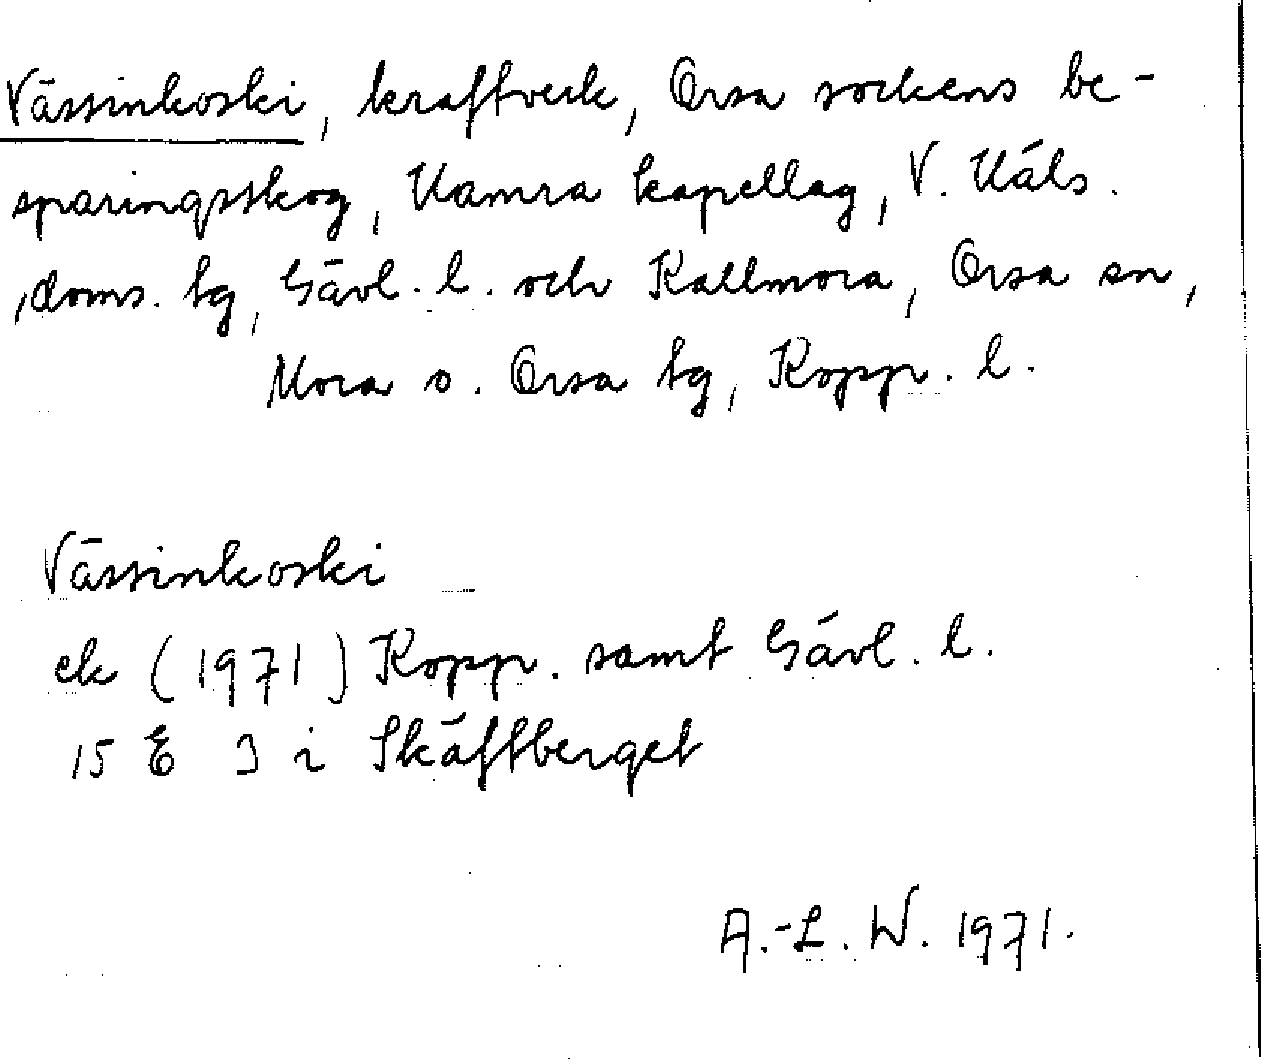 Vässinkoski, kraftverk, Orsa sockens be-
sparingsskog, Hamra kapellag, V. Häls.
doms. tg, Gävl. l. och Kallmora, Orsa sn,
Mora o. Orsa tg, Kopp. l.
Vässinkoski
ek (1971) Kopp. samt Gävl. l.
15 E J i Skäftberget
A.-L. W. 1971.